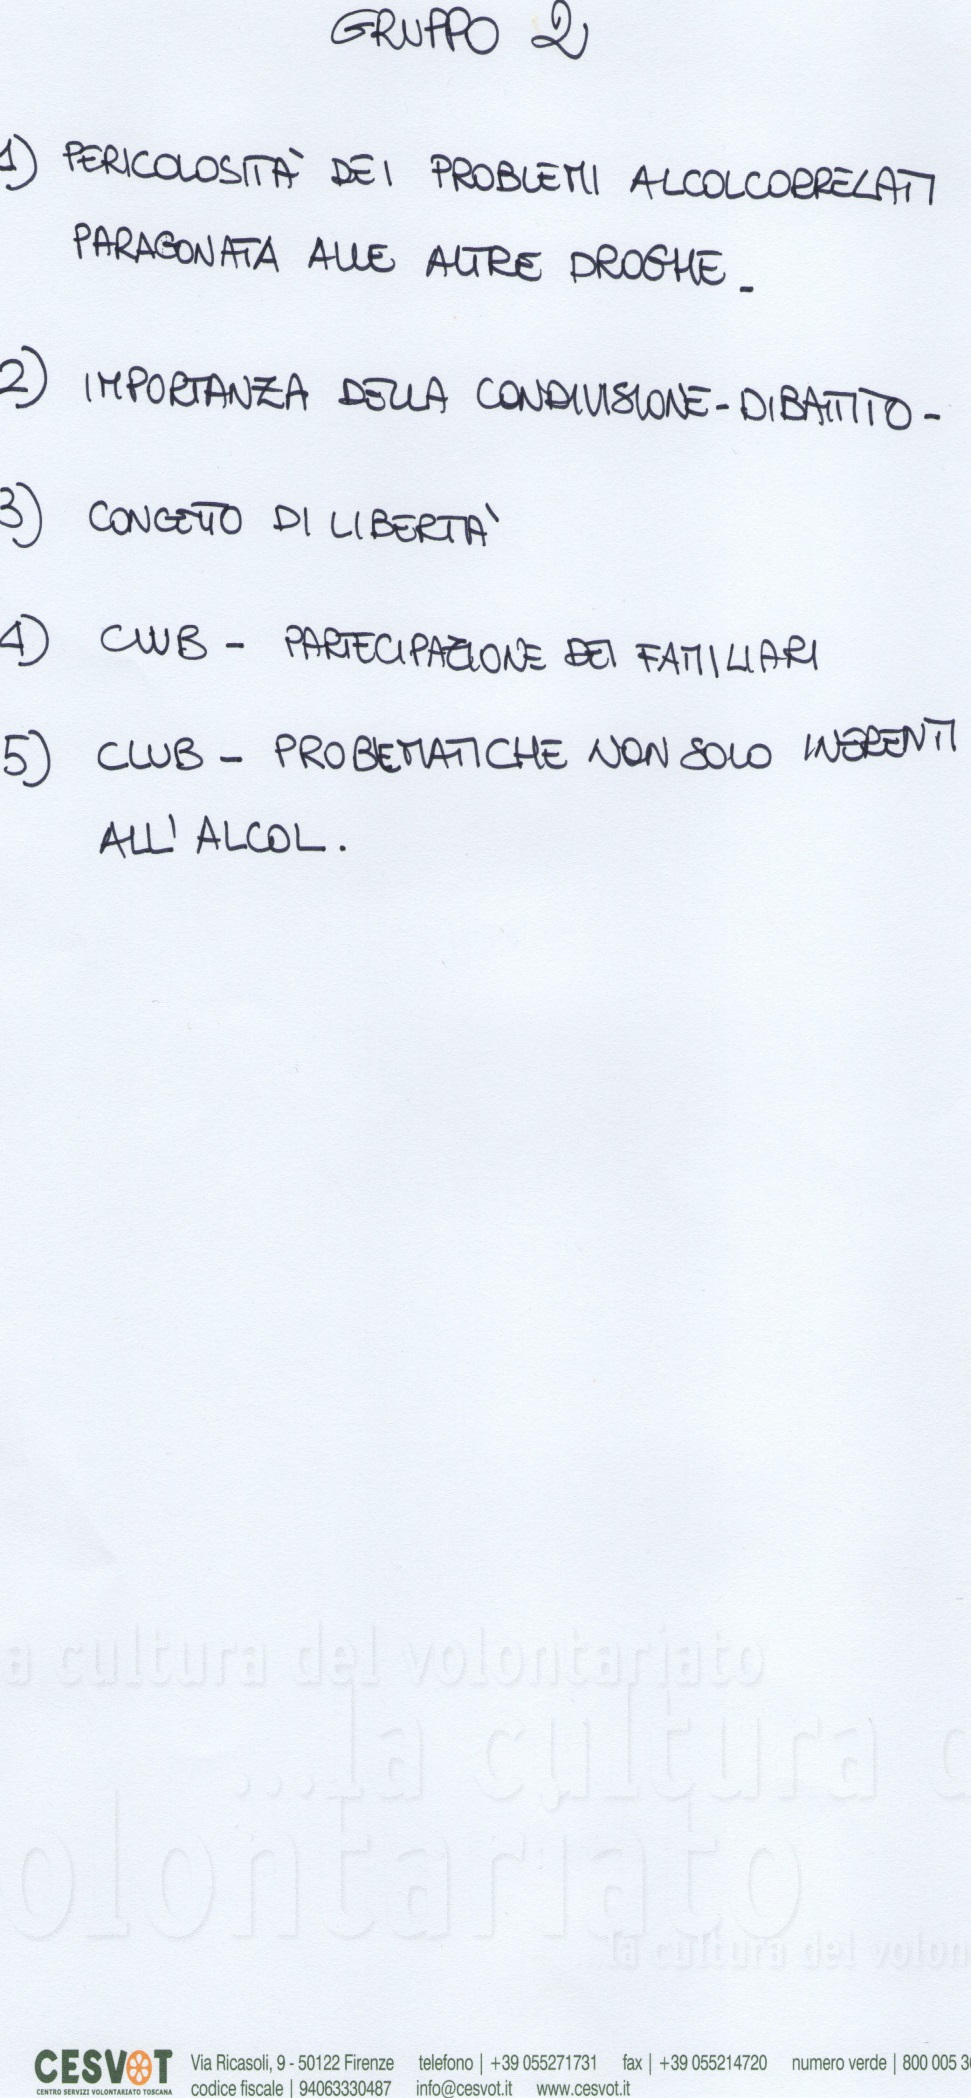 GRUPPO 2
1) PERICOLOSITÀ DEI PROBLEMI ALCOLCORRELATI
PARAGONATA ALLE ALTRE DROGHE_
2) IMPORTANZA DELLA CONDIVISIONE-DIBATTITO-
3) CONCETTO DI LIBERTA'
4) CLUB - PARTECIPAZIONE DEI FAMILIARI
5) CLUB - PROBLEMATICHE NON SOLO INERENTI
ALL'ALCOL.
a cultura del volontariato
...la cultura d
olontariato
la cultura del volon
CESVOT
CENTRO SERVIZI VOLONTARIATO TOSCANA
Via Ricasoli, 9 - 50122 Firenze telefono | +39 055271731 fax | +39 055214720 numero verde | 800 005 3
codice fiscale | 94063330487 info@cesvot.it www.cesvot.it